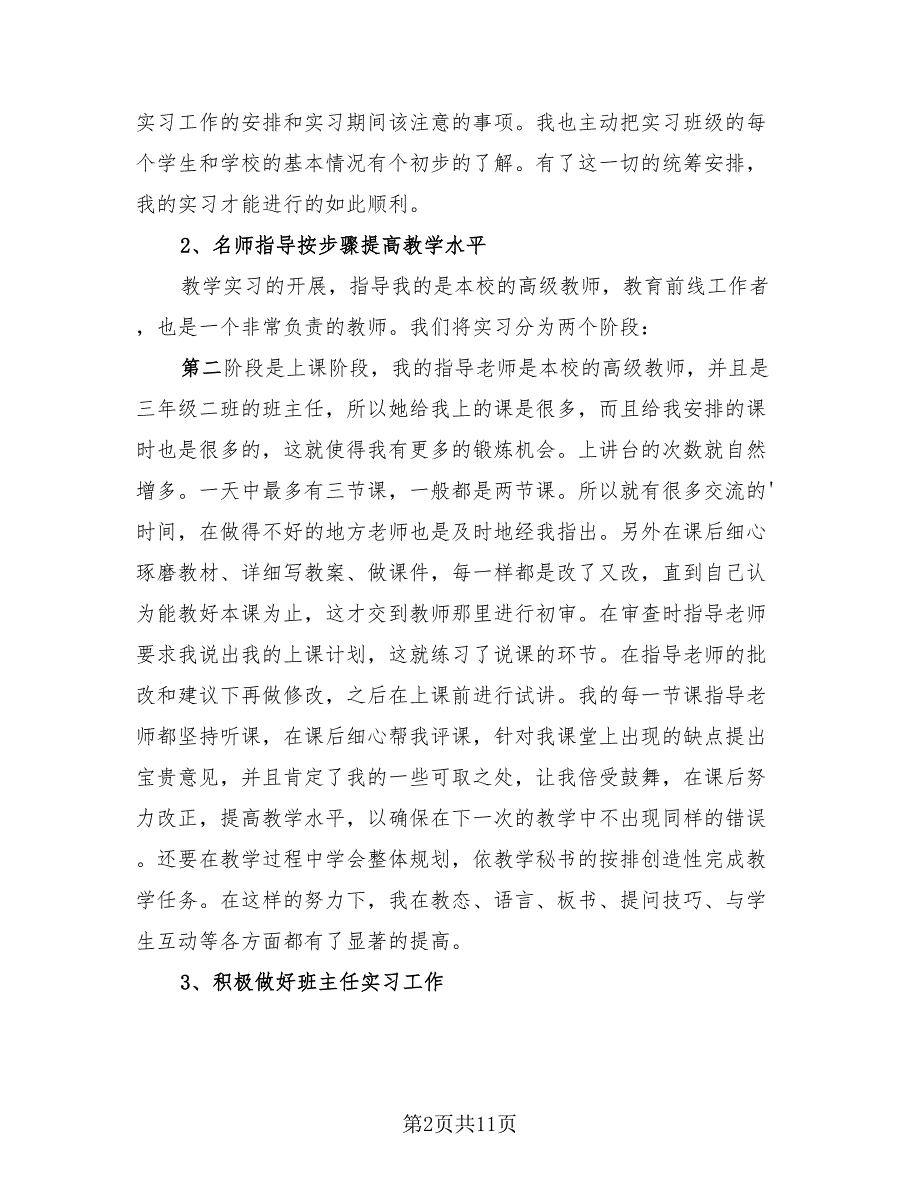 实习工作的安排和实习期间该注意的事项。我也主动把实习班级的每
个学生和学校的基本情况有个初步的了解。有了这一切的统筹安排，
我的实习才能进行的如此顺利。
2、名师指导按步骤提高教学水平
教学实习的开展，指导我的是本校的高级教师，教育前线工作者
，也是一个非常负责的教师。我们将实习分为两个阶段：
第二阶段是上课阶段，我的指导老师是本校的高级教师，并且是
三年级二班的班主任，所以她给我上的课是很多，而且给我安排的课
时也是很多的，这就使得我有更多的锻炼机会。上讲台的次数就自然
增多。一天中最多有三节课，一般都是两节课。所以就有很多交流的'
时间，在做得不好的地方老师也是及时地经我指出。另外在课后细心
琢磨教材、详细写教案、做课件，每一样都是改了又改，直到自己认
为能教好本课为止，这才交到教师那里进行初审。在审查时指导老师
要求我说出我的上课计划，这就练习了说课的环节。在指导老师的批
改和建议下再做修改，之后在上课前进行试讲。我的每一节课指导老
师都坚持听课，在课后细心帮我评课，针对我课堂上出现的缺点提出
宝贵意见，并且肯定了我的一些可取之处，让我倍受鼓舞，在课后努
力改正，提高教学水平，以确保在下一次的教学中不出现同样的错误
。还要在教学过程中学会整体规划，依教学秘书的按排创造性完成教
学任务。在这样的努力下，我在教态、语言、板书、提问技巧、与学
生互动等各方面都有了显著的提高。
3、积极做好班主任实习工作
第2页共11页